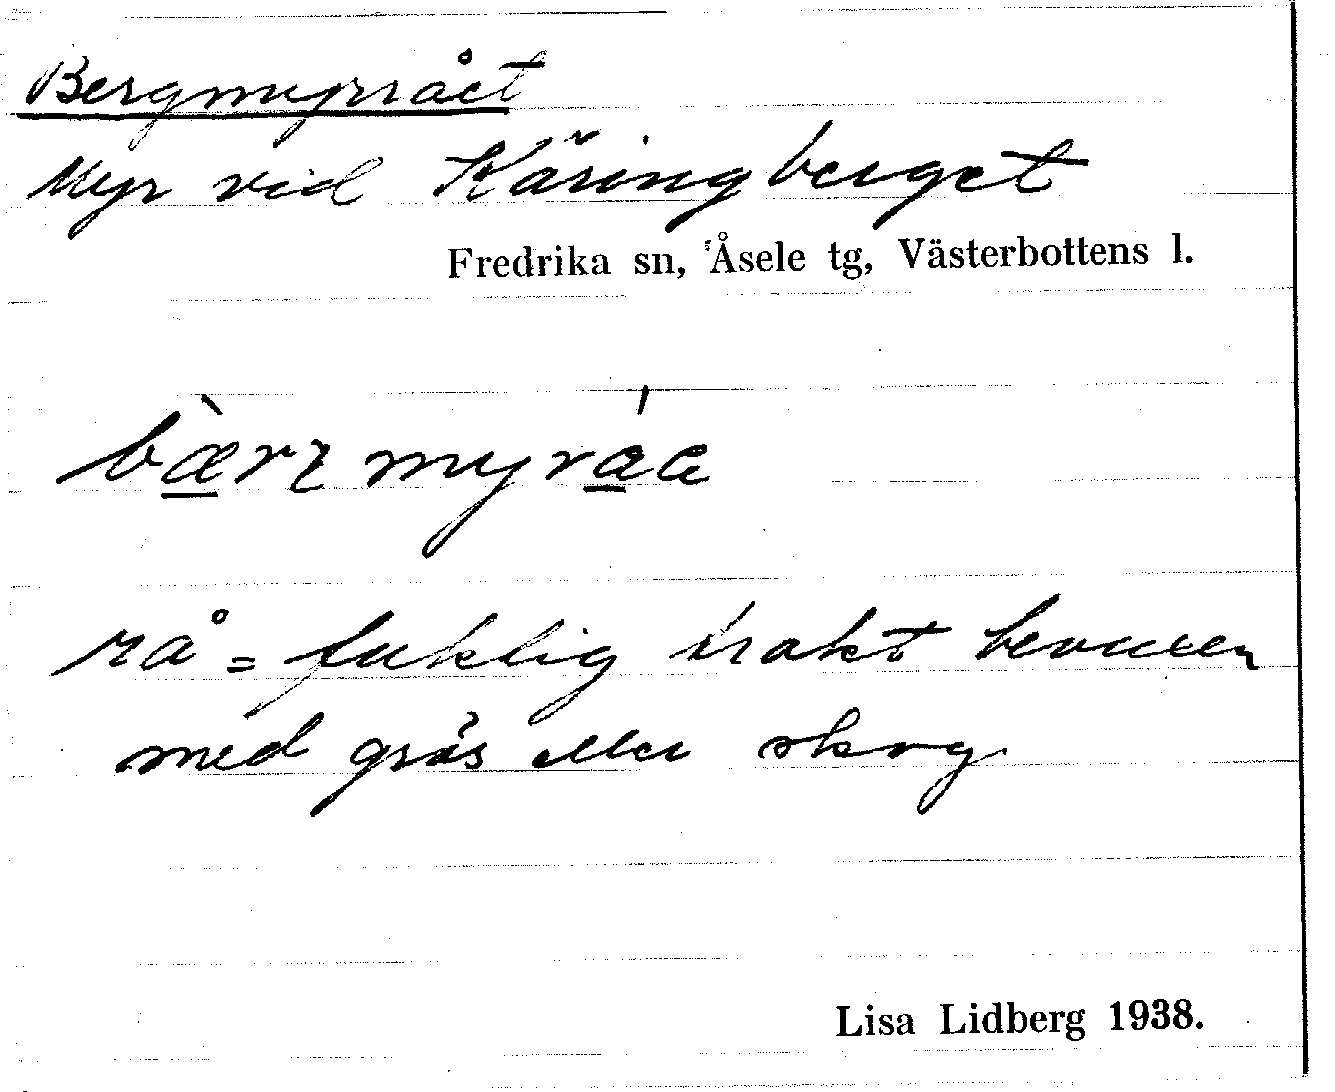 Bergmyrrået
Myr vid Käringberget
Fredrika sn, Åsele tg, Västerbottens l.
bæ̀rʒmyráa
rå = fuktig trakt bevuxen
med gräs eller skog
Lisa Lidberg 1938.